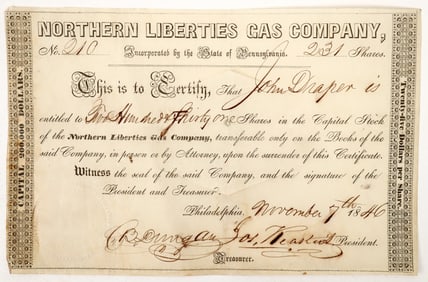 NORTHERN LIBERTIES GAS COMPANY,
No. 210 Incorporated by the State of Pennsylvania. 231 Shares.
This is to Certify, That John Draper is
entitled to Two Hundred Thirty one Shares in the Capital Stock
of the Northern Liberties Gas Company, transferable only on the Books of the
said Company, in person or by Attorney, upon the surrender of this Certificate.
Witness the seal of the said Company, and the signature of the
President and Treasurer.
Philadelphia, November 7th 1846
President.
Treasurer.
CAPITAL 200,000 DOLLARS.
Twenty-five Dollars per Share.